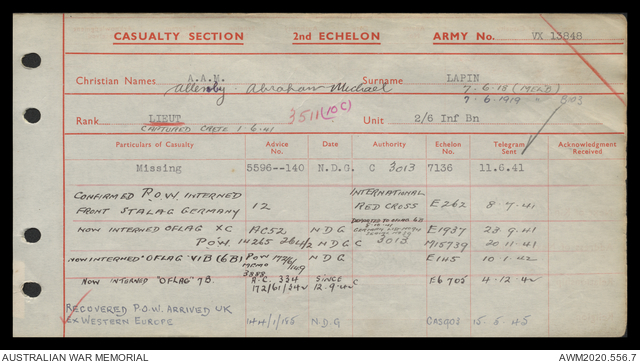 CASUALTY SECTION 2nd ECHELON ARMY No. VX 13848
A.A.M. LAPIN
Christian Names Allenby Abraham Michael Surname
7-6-18 (MELB)
7-6-1919 B103
Rank LIEUT 3511 (10C) Unit 2/6 Inf Bn
CAPTURED CRETE 1-6-41
Particulars of Casualty Advice No. Date Authority Echelon No. Telegram Sent Acknowledgment Received
Missing 5596--140 N.D.G. C 3013 7136 11.6.41
CONFIRMED P.O.W. INTERNED INTERNATIONAL
FRONT STALAG GERMANY 12 RED CROSS E262 8 7 41
NOW INTERNED OFLAG XC AC52 N D G E1937 23 9 41
P.O.W. 14265 264/2 N D G C 3013 M15739 20 11 41
NOW INTERNED "OFLAG" VIB (6B) P.O.W. MEMO 3888 N D G E145 10.1.42
NOW INTERNED "OFLAG" 7B. A.C. 334 SINCE C E6705 4.12.42
172/61/242 12.9.42
RECOVERED P.O.W. ARRIVED UK
EX WESTERN EUROPE 144/1/155 N.D.G CAS903 15.5.45
AUSTRALIAN WAR MEMORIAL AWM2020.556.7